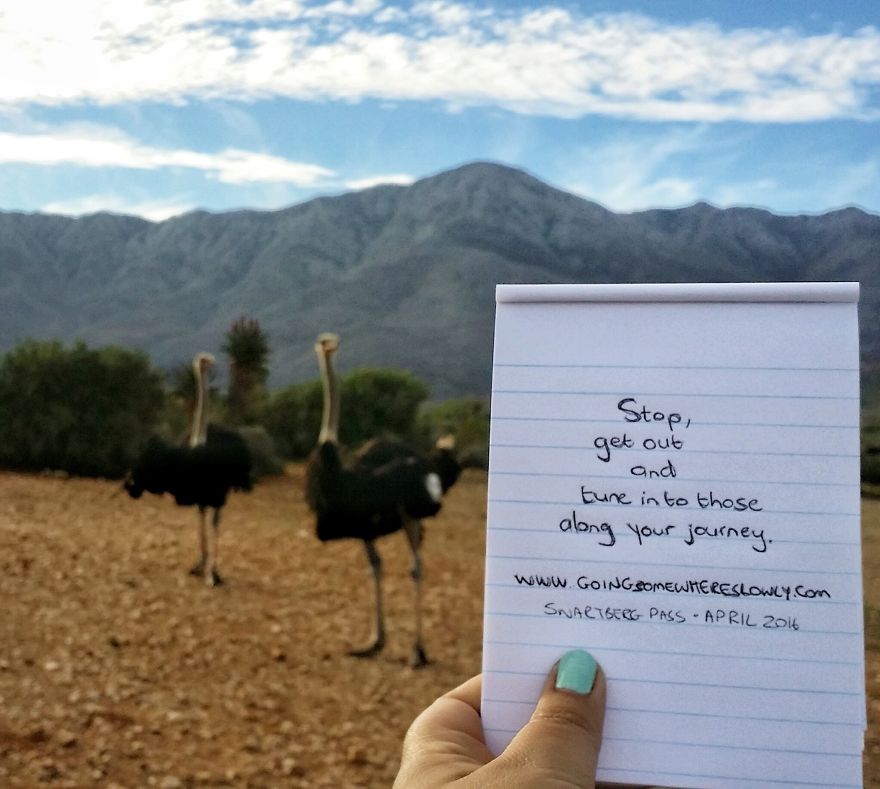 Stop,
get out
and
tune in to those
along your journey.
www.GOINGSOMEWHERESLOWLY.com
SWARTBERG PASS - APRIL 2016